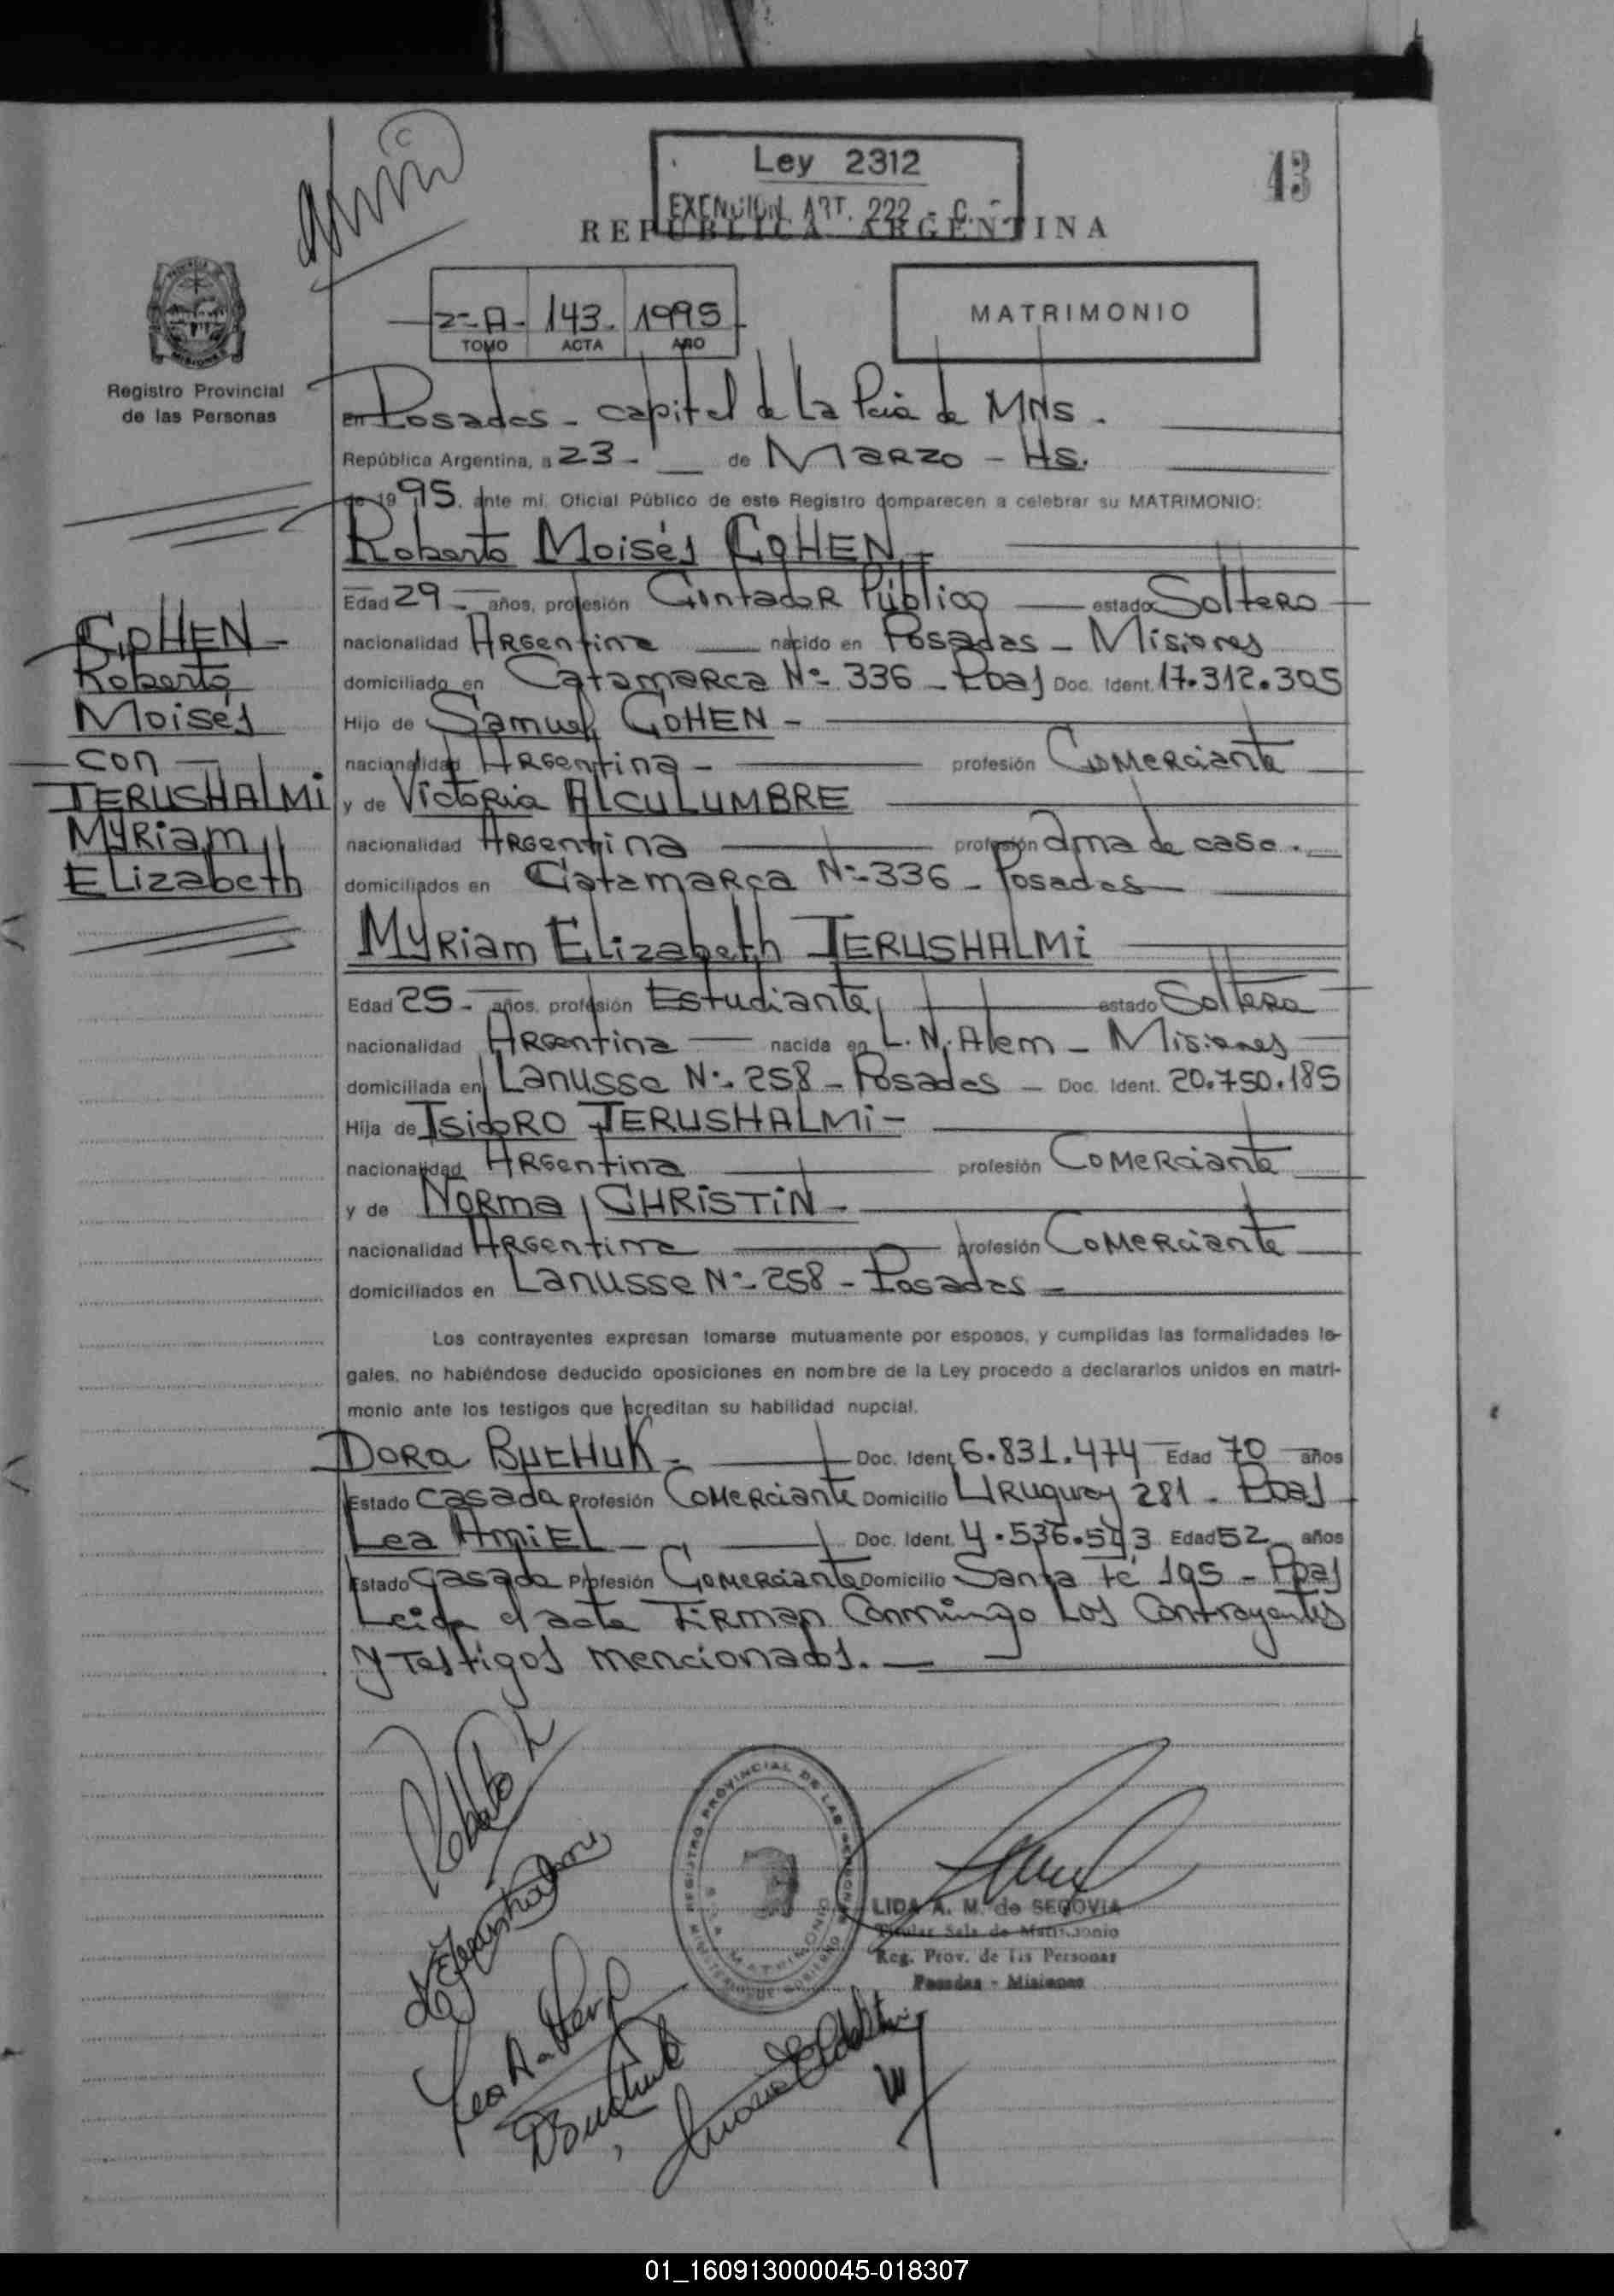 Ley 2312
EXENCION ART. 222 - C.
43
REPUBLICA ARGENTINA
2-A- 143. 1995
TOMO ACTA AÑO
MATRIMONIO
Registro Provincial
de las Personas
En Posadas - capital de La Pcia de MNS.
República Argentina, a 23 - de Marzo - Hs.
de 1995. ante mi. Oficial Público de este Registro comparecen a celebrar su MATRIMONIO:
Roberto Moisés COHEN -
Edad 29 - años, profesión Contador Público estado Soltero
nacionalidad Argentina nacido en Posadas - Misiones
domiciliado en Catamarca Nº 336 - Pdas Doc. Ident. 17.312.305
Hijo de Samuel COHEN -
nacionalidad Argentina - profesión Comerciante
y de Victoria ALCULUMBRE
nacionalidad Argentina profesión ama de casa.
domiciliados en Catamarca Nº 336 - Posadas
COHEN -
Roberto
Moisés
con
JERUSHALMI
Myriam
Elizabeth
Myriam Elizabeth JERUSHALMI
Edad 25 - años, profesión Estudiante estado Soltera
nacionalidad Argentina nacida en L. N. Alem - Misiones
domiciliada en Lanusse Nº 258 - Posadas - Doc. Ident. 20.750.185
Hija de Isidoro JERUSHALMI -
nacionalidad Argentina profesión Comerciante
y de Norma CHRISTIN -
nacionalidad Argentina profesión Comerciante
domiciliados en Lanusse Nº 258 - Posadas
Los contrayentes expresan tomarse mutuamente por esposos, y cumplidas las formalidades le-
gales, no habiéndose deducido oposiciones en nombre de la Ley procedo a declararlos unidos en matri-
monio ante los testigos que acreditan su habilidad nupcial.
Dora Doc. Ident. 6.831.474 Edad 70 años
Estado casada Profesión Comerciante Domicilio Uruguay 281 - Pdas
Lea AMIEL Doc. Ident. 4.536.543 Edad 52 años
Estado casada Profesión Comerciante Domicilio Santa Fé 195 - Pdas
Leida el acta Firman Conmingo Los Contrayentes
y Testigos mencionados.
REGISTRO PROVINCIAL DE LAS PERSONAS
MINISTERIO DE GOBIERNO
LIDA A. M. de SEGOVIA
Titular Sala de Matrimonio
Reg. Prov. de las Personas
Posadas - Misiones
01_160913000045-018307